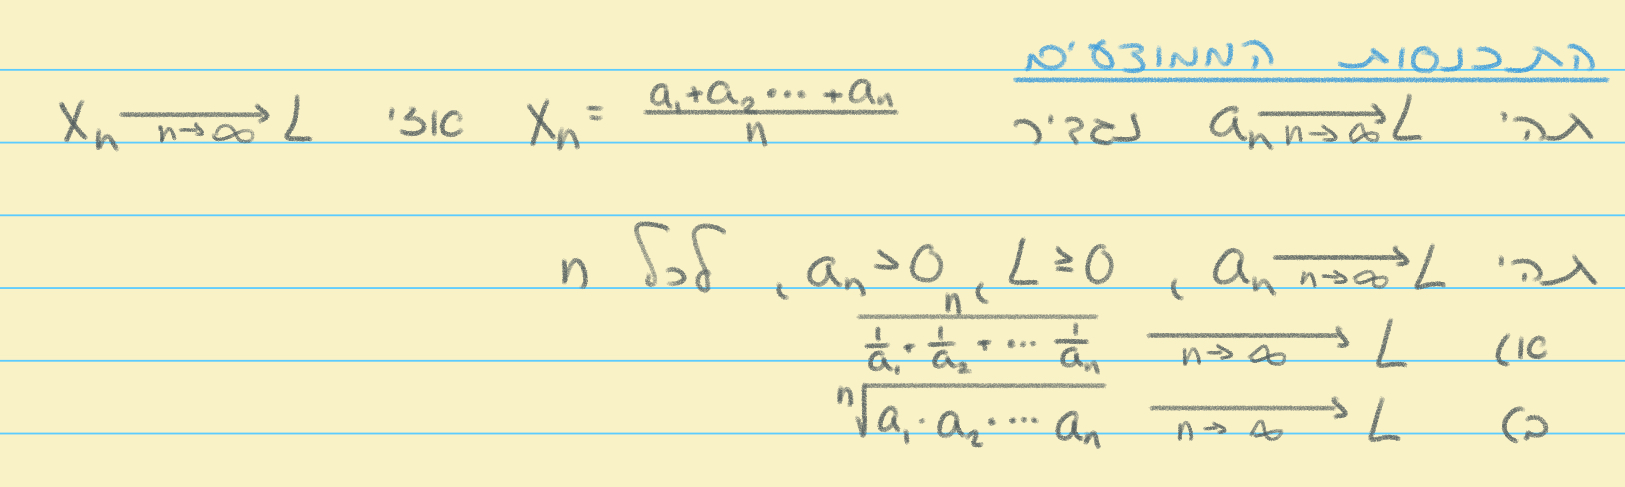 התכנסות הממוצעים
תהי a_n ⟶_{n→∞} L נגדיר X_n = (a_1+a_2⋯+a_n)/n אזי X_n ⟶_{n→∞} L
תהי a_n ⟶_{n→∞} L, L ≥ 0, a_n > 0, לכל n
א) n/(1/a_1 + 1/a_2 + ⋯ 1/a_n) ⟶_{n→∞} L
ב) ⁿ√(a_1 · a_2 · ⋯ a_n) ⟶_{n→∞} L